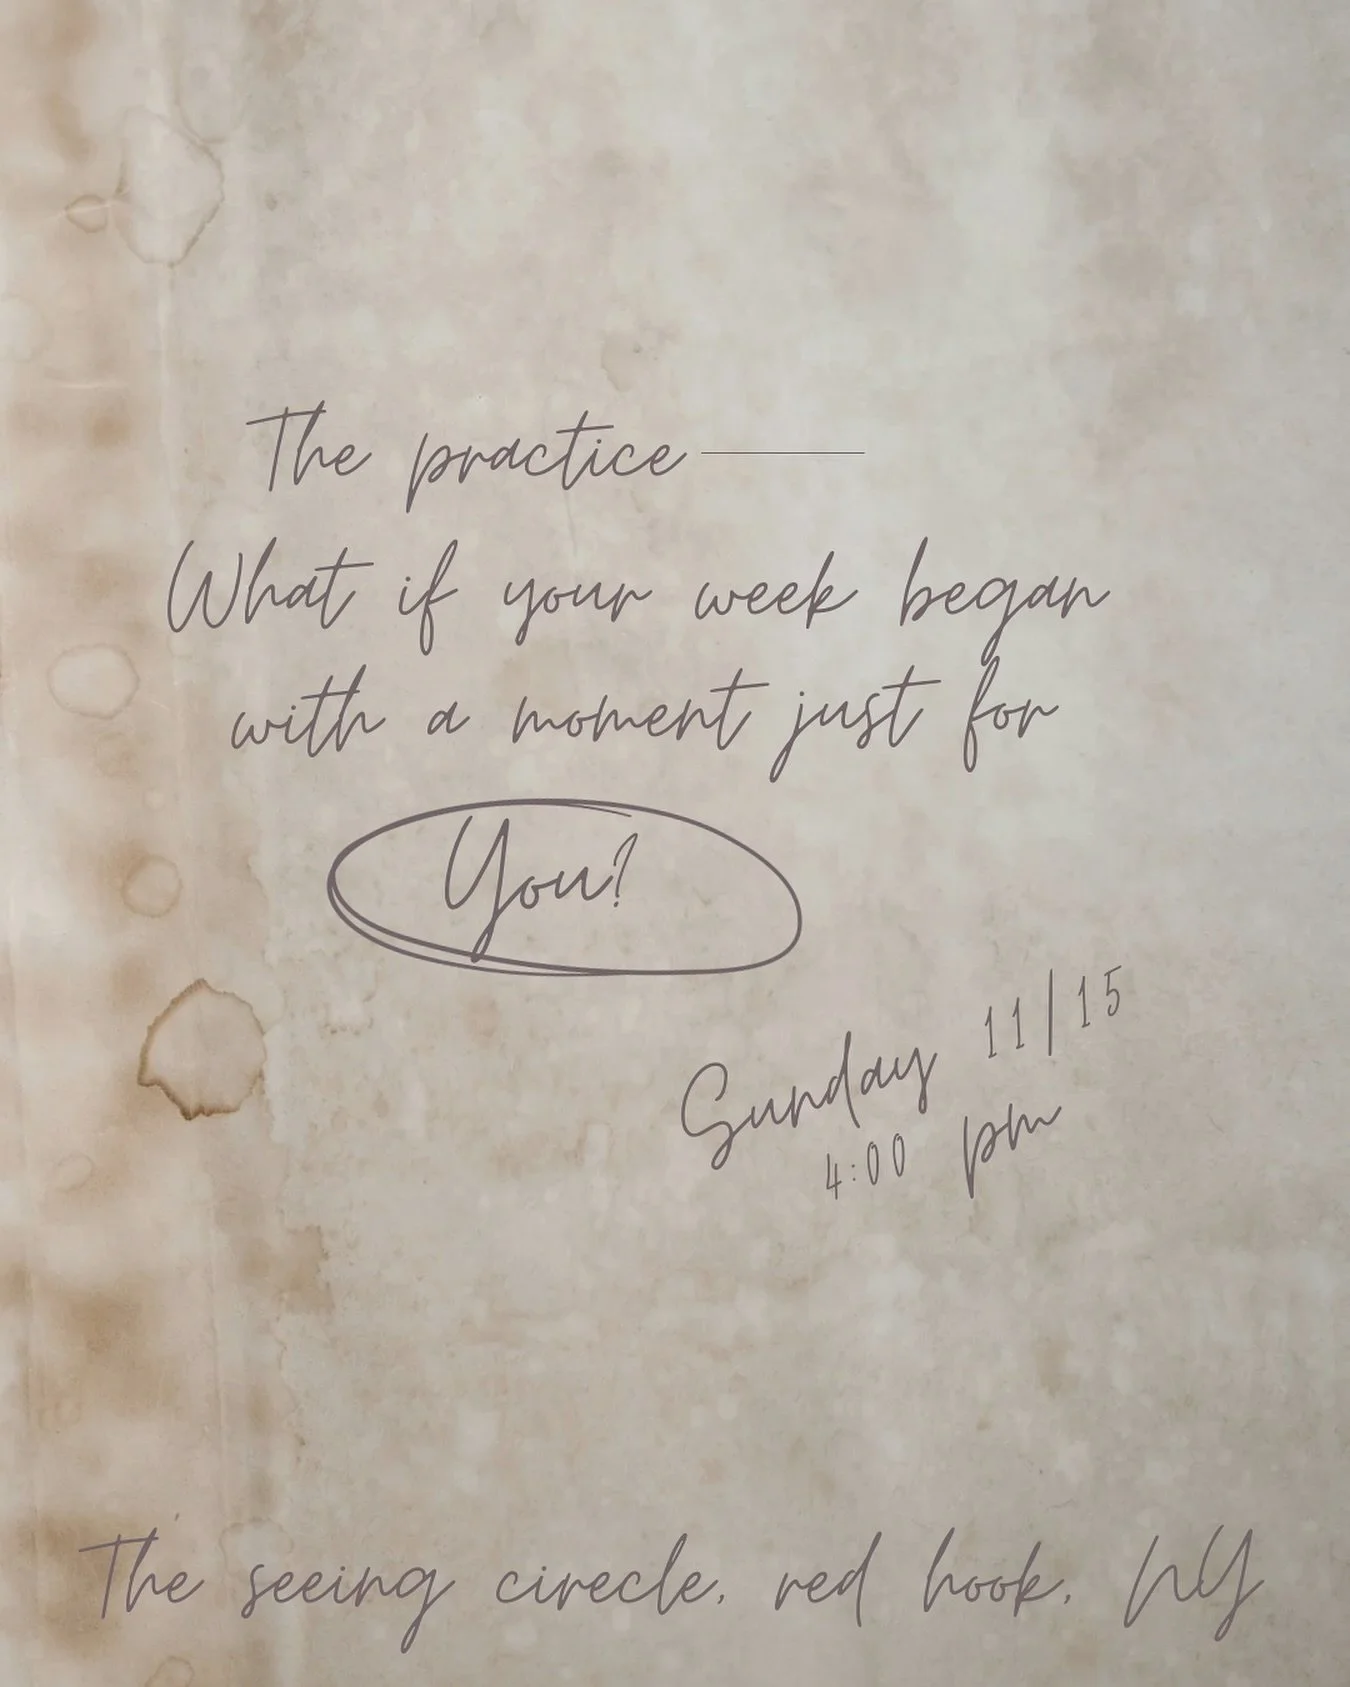 The practice —
What if your week began
with a moment just for
You?
Sunday 11/15
4:00 pm
The seeing cirecle, red hook, NY